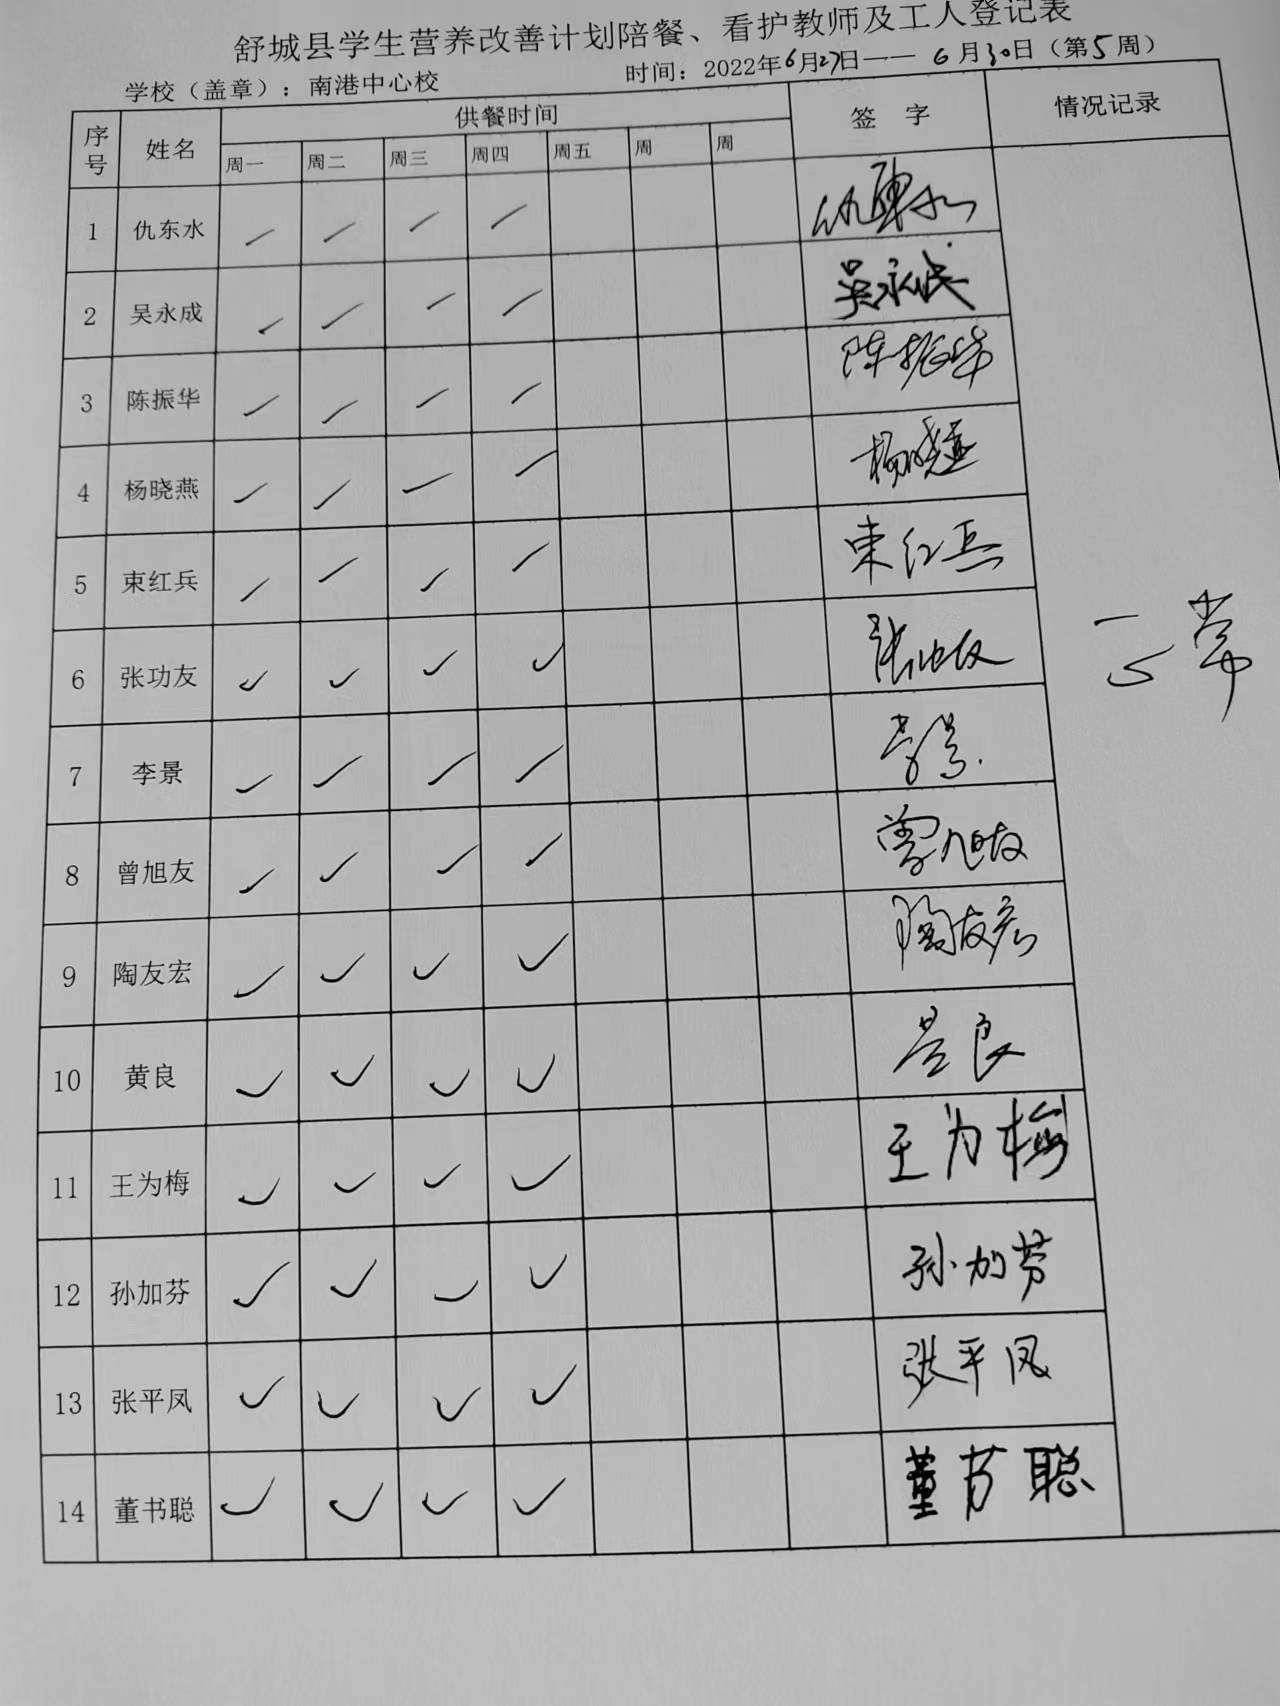 舒城县学生营养改善计划陪餐、看护教师及工人登记表
学校（盖章）：南港中心校 时间：2022年6月27日—— 6月30日（第5周）
序号 姓名 供餐时间 签 字 情况记录
周一 周二 周三 周四 周五 周 周
1 仇东水 仇东水
2 吴永成 吴永成
3 陈振华 陈振华
4 杨晓燕 杨晓燕
5 束红兵 束红兵
6 张功友 张功友
正常
7 李景 李景
8 曾旭友 曾旭友
9 陶友宏 陶友宏
10 黄良 黄良
11 王为梅 王为梅
12 孙加芬 孙加芬
13 张平凤 张平凤
14 董书聪 董书聪